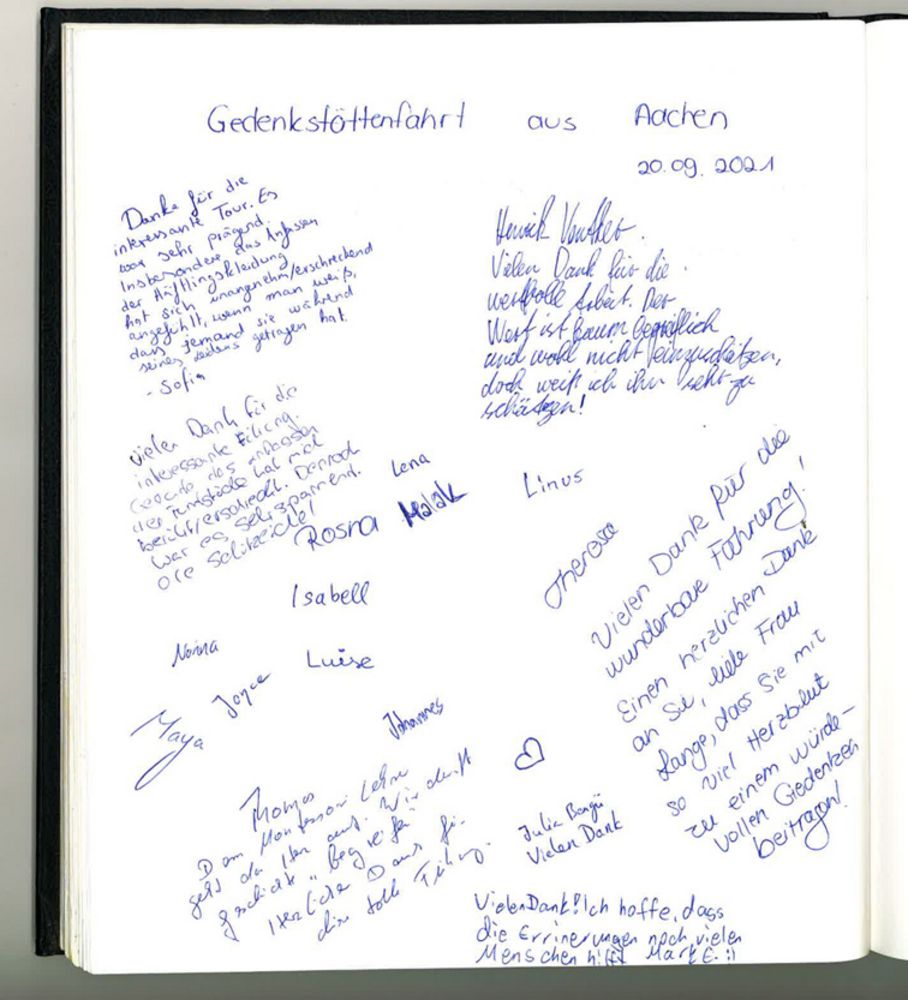 Gedenkstättenfahrt aus Aachen
20.09.2021
Danke für die
interessante Tour. Es
war sehr prägend.
Insbesondere das Anfassen
der Häftlingskleidung
hat sich unangenehm/erschreckend
angefühlt, wenn man weiß,
dass jemand sie während
seines Leidens getragen hat.
- Sofia
Henrik
Vielen Dank für die
wertvolle Arbeit. Der
Wert ist kaum begreiflich
und wohl nicht einzuschätzen,
doch weiß ich ihn sehr zu
schätzen!
Vielen Dank für die
interessante
Gerade das anfassen
der hat mich
berührt/erschreckt. Dennoch
war es sehr spannend.
Lena
Rosna Malak
Linus
Isabell
Theresa
Vielen Dank für die
wunderbare Führung!
Einen herzlichen Dank
an Sie, liebe Frau
Lange, dass Sie mit
so viel Herzblut
zu einem würde-
vollen Gedenken
beitragen!
Norina
Joyce Luise
Maya
Johannes
Thomas
Dem Montessori Lehrer
geht da Herz auf. Wir durft
Geschichte "begreifen"
Herzlichen Dank für
diese tolle Führung.
Julia
Vielen Dank
Vielen Dank! Ich hoffe, dass
die Errinerungen noch vielen
Menschen hilft Mark E. :)